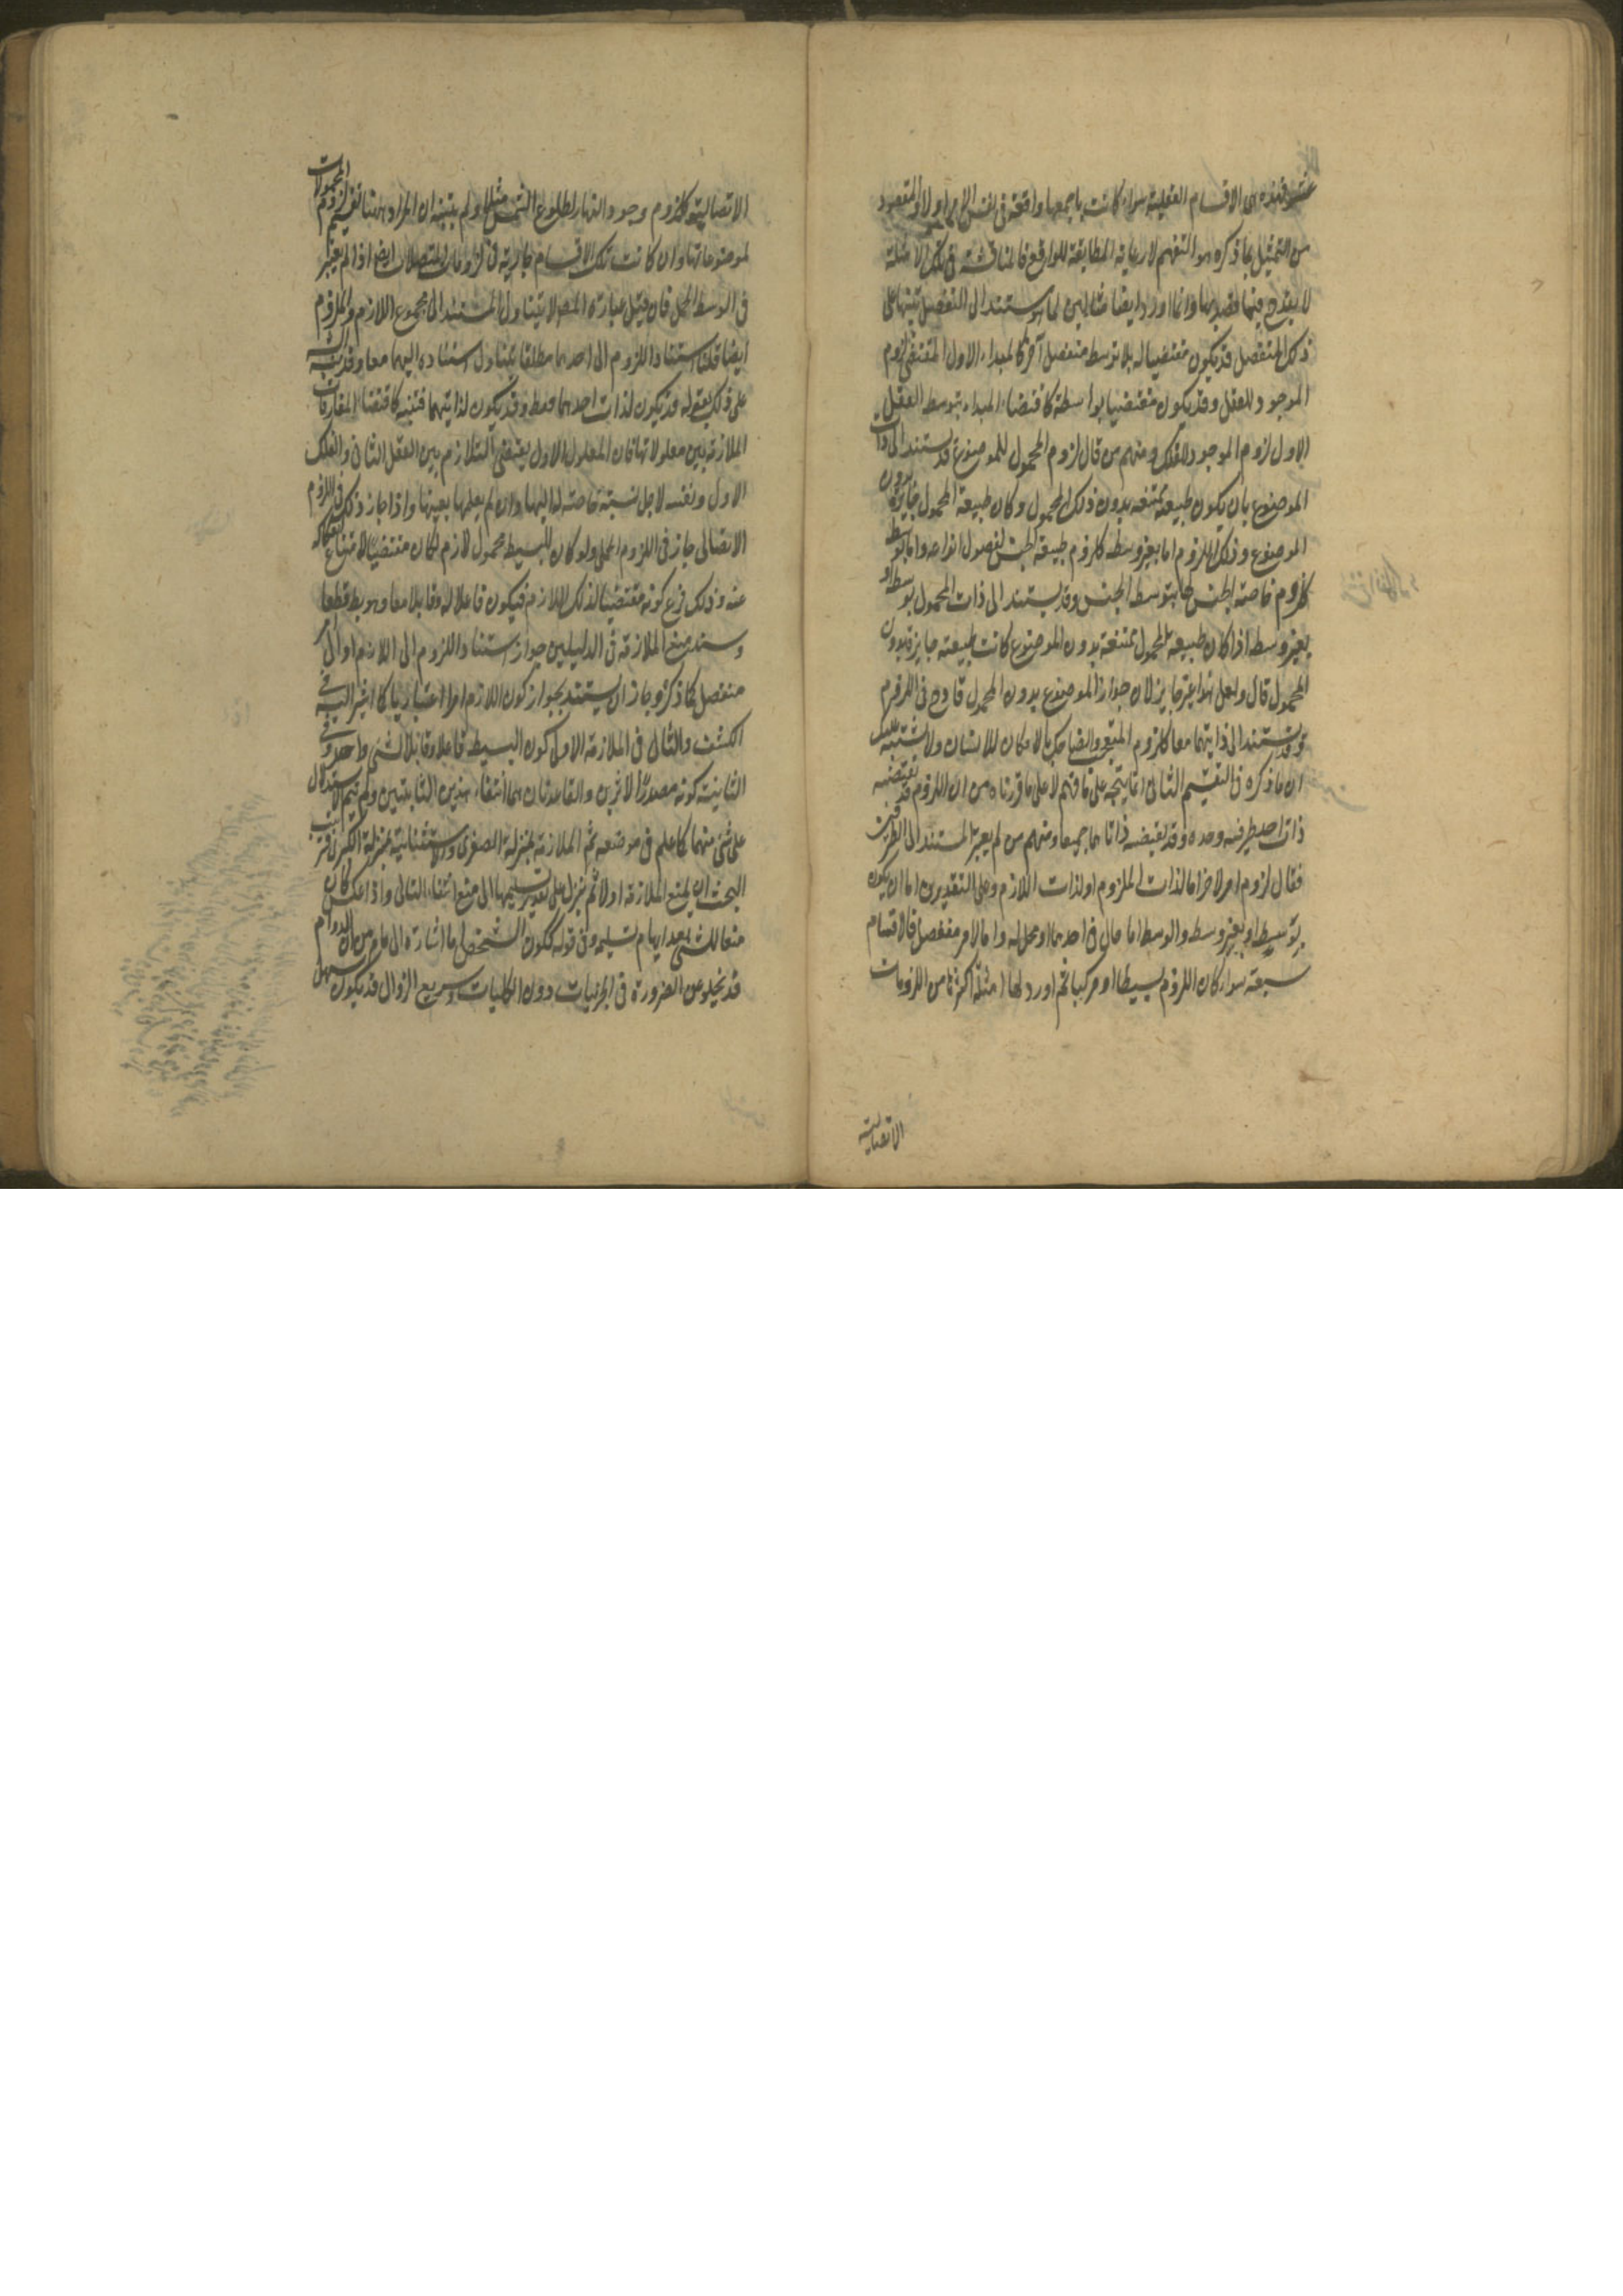 فهذه هى الاقسام العقلية سواء كانت باجمعها واقعة فى نفس الامر اولا والمقصود
من التمثيل بما ذكره هو التفهيم لا رعاية المطابقة للواقع فالمناقشة فى تلك الامثلة
لا يقدح فيما قصد بها وانما اورد ايضا مثالين لما يستند الى المنفصل تنبيها على
ذلك المنفصل قد يكون مقتضيا له بلا توسط منفصل آخر كالمبداء الاول المقتضى لزوم
الموجود للعقل وقد يكون مقتضيا بواسطة كاقتضاء المبداء بتوسط العقل
الاول لزوم الموجود للفلك ومنهم من قال لزوم المحمول للموضوع قد يستند الى ذات
الموضوع بان يكون طبيعته ممتنعة بدون ذلك المحمول وكان طبيعة المحمول جايزة بدون
الموضوع وذلك اللزوم اما بغير وسط كلزوم طبيعة الجنس لفصول انواعه واما بوسط
كلزوم خاصة الجنس لها بتوسط الجنس وقد يستند الى ذات المحمول بوسط او
بغير وسط اذا كان طبيعة المحمول ممتنعة بدون الموضوع كانت طبيعته جايزة بدون
المحمول قال ولعل هذا غير جايز لان جواز الموضوع بدون المحمول قادح فى اللزوم
وقد يستند الى ذاتيهما معا كلزوم المتعجب والضاحك بالامكان للانسان ولا يشتبه عليك
ان ما ذكره فى التقسيم الثانى انما يتجه على ما فهم لا على ما قررناه من ان اللزوم قد يقتضيه
ذات احد طرفيه وحده وقد يقتضيه ذاتاهما جميعا ومنهم من لم يعتبر المستند الى الطرفين
فقال لزوم امر لآخر اما لذات الملزوم او لذات اللازم وعلى التقديرين اما ان يكون
بتوسط او بغير وسط والوسط اما حال فى احدهما او محل له واما لامر منفصل فالاقسام
سبعة سواء كان اللزوم بسيطا او مركبا ثم اورد لها امثلة اكثرها من اللزومات
الاتصالية
الاتصالية كلزوم وجود النهار لطلوع الشمس مثلا ولم يتنبه ان المراد ههنا تقسيم لزوم المحمولات
لموضوعاتها وان كانت تلك الاقسام جارية فى لزومات المتصلات ايضا اذا لم يعتبر
فى الوسط الحمل فان قيل عبارة المص لا يتناول المستند الى مجموع اللازم والملزوم
ايضا قلنا استناد اللزوم الى احدهما مطلقا يتناول استناده اليهما معا وقد نبه
على ذلك بقوله قد يكون لذات احدهما فقط وقد يكون لذاتيهما فتنبه كاقتضاء المفارقات
الملازمة بين معلولاتها فان المعلول الاول يقتضى التلازم بين العقل الثانى والفلك
الاول ونفسه لاجل نسبة خاصة له اليها وان لم يعلمها بعينها واذا جاز ذلك فى اللزوم
الاتصالى جاز فى اللزوم الحملى ولو كان للبسيط محمول لازم لكان مقتضيا لامتناع انفكاكه
عنه وذلك فرع كونه مقتضيا لذلك اللازم فيكون فاعلا له وقابلا معا وهو بط قطعا
وسند منع الملازمة فى الدليلين جواز استناد اللزوم الى اللازم او الى
منفصل كما ذكر وجاز ان يستند بجواز كون اللازم امرا اعتباريا كما اشير اليه فى
الكشف والتالى فى الملازمة الاولى كون البسيط فاعلا وقابلا لشئ واحد وفى
الثانية كونه مصدرا لاثرين والقاعدتان هما انتفاء هذين التاليين ولم يتم الاستدلال
على شئ منهما كما علم فى موضعه ثم الملازمة بمنزلة الصغرى والاستثنائية بمنزلة الكبرى فترتيب
البحث ان يمنع الملازمة اولا ثم ينزل على تقدير تسليمها الى منع انتفاء التالى واذا عكس كان
منعا للشئ بعد ايهام تسليمه وفى قوله ككون الشخص ما اشارة الى ما مر من ان الدوام
قد يخلو عن الضرورة فى الجزئيات دون الكليات وسريع الزوال قد يكون سهل